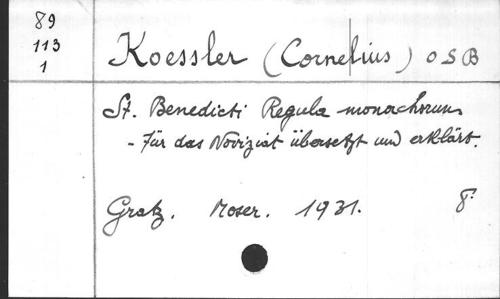 89
113
1
Koessler (Cornelius) OSB
St. Benedicti Regula monachorum
- Für das Noviziat übersetzt und erklärt.
Gratz. Moser. 1931. 8°.